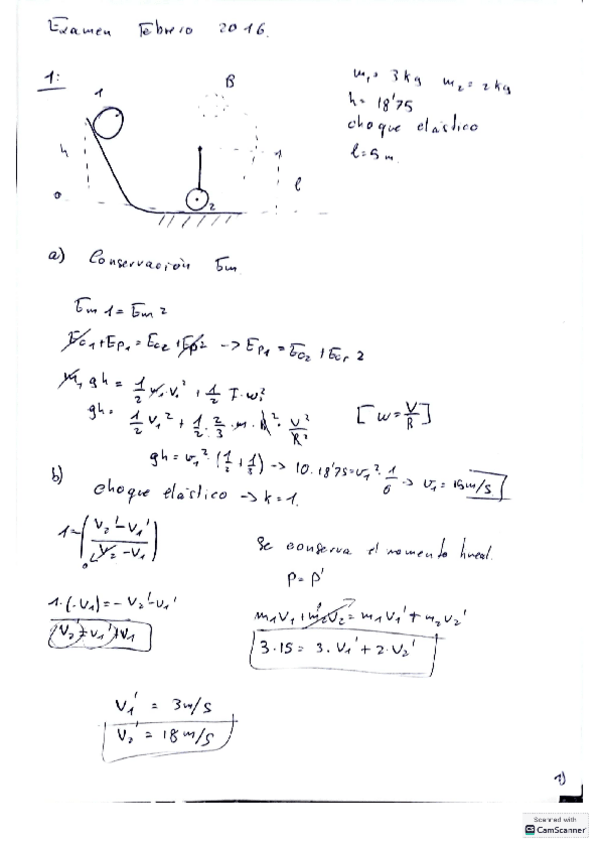 Examen Febrero 2016.
1:
m₁ = 3 kg m₂ = 2 kg
h = 18'75
choque elástico
l = 5 m.
1
B
h
1
l
0
2
a) Conservación Em
Em 1 = Em 2
Ec₁ + Ep₁ = Ec₂ + Ep₂ -> Ep₁ = Ec₂ + Ecr 2
m₁gh = 1/2 m₁ v₁² + 1/2 I · w₁²
gh = 1/2 v₁² + 1/2 · 2/3 · m · R² · V²/R² [w = V/R]
gh = v₁² · (1/2 + 1/3) -> 10 · 18'75 = v₁² · 1/6 -> v₁ = 15 m/s
b) choque elástico -> k = 1.
1 = -(V₂' - V₁' / V₂ - V₁)
0
Se conserva el momento lineal.
P = P'
1 · (-V₁) = -V₂' - V₁'
m₁V₁ + m₂V₂ = m₁V₁' + m₂V₂'
V₂' = V₁' + V₁
3 · 15 = 3 · V₁' + 2 · V₂'
V₁' = 3 m/s
V₂' = 18 m/s
1)
Scanned with
CS CamScanner